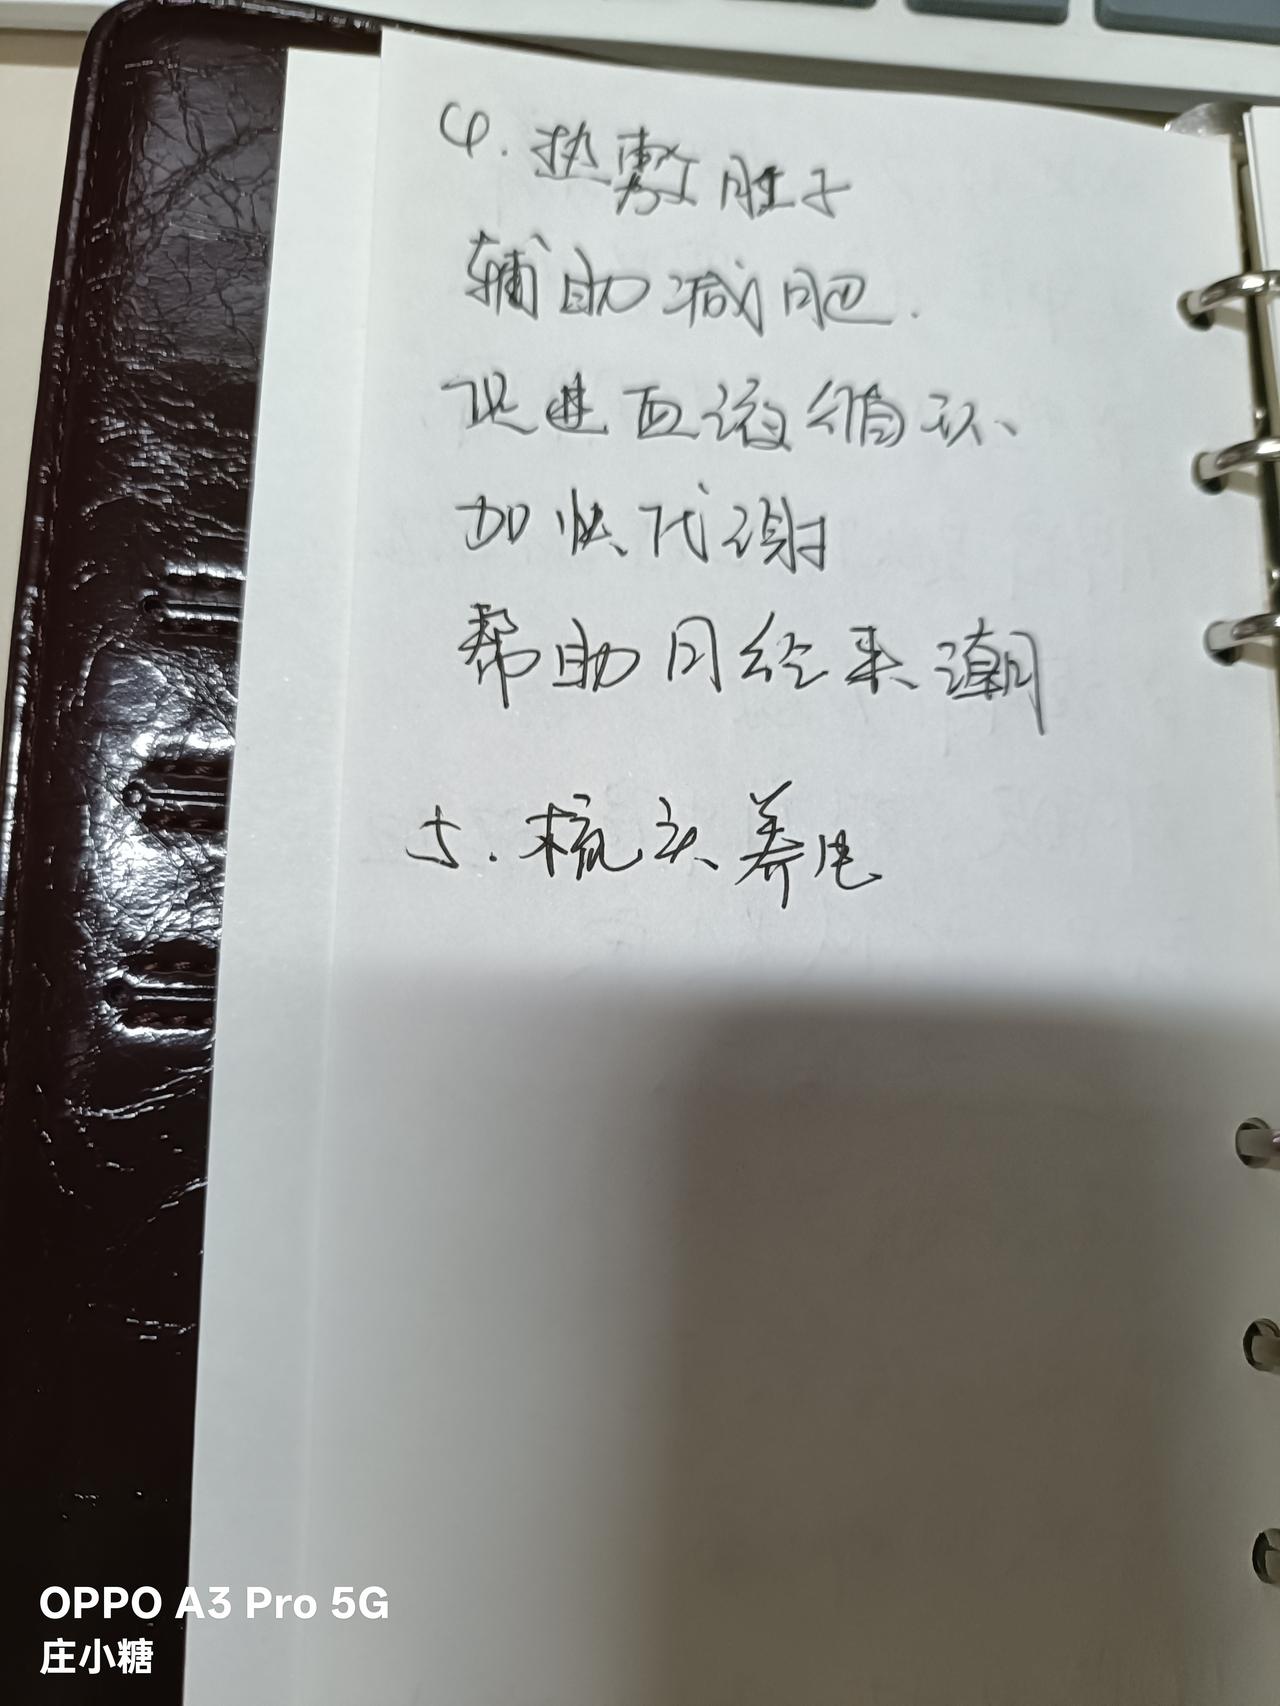 4. 热敷肚子
辅助减肥.
促进血液循环、
加快代谢
帮助月经来潮
5. 梳头养生
OPPO A3 Pro 5G
庄小糖